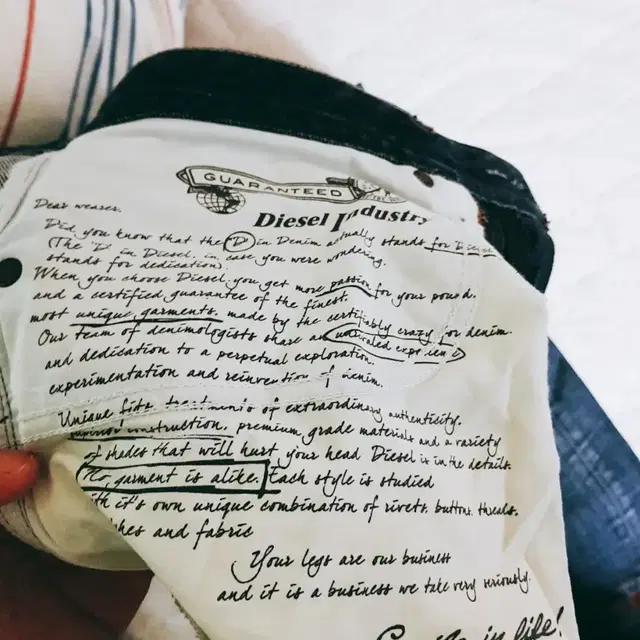 GUARANTEED
Diesel Industry
Dear wearer.
Did you know that the "D" in Denim actually stands for Diesel
(The "D" in Diesel, in case you were wondering,
stands for dedication).
When you choose Diesel you get more passion for your pound.
and a certified guarantee of the finest.
most unique garments. made by the certifiably crazy for denim.
Our team of denimologists share an unrivaled experience
and dedication to a perpetual exploration.
experimentation and reinvention of denim.
Unique fits treatments of extraordinary authenticity.
construction, premium grade materials and a variety
of shades that will hurt your head Diesel is in the details.
No garment is alike. Each style is studied
with it's own unique combination of rivets. buttons. threads.
and fabric
Your legs are our business
and it is a business we take very seriously.
in life!